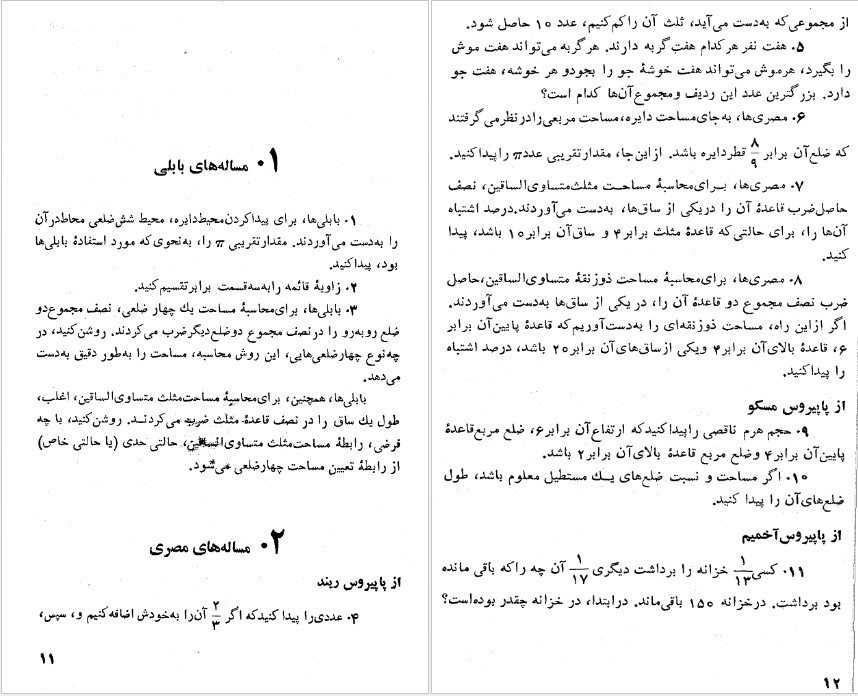 ۰۱ مساله‌های بابلی
۰۱ بابلی‌ها، برای پیدا کردن محیط دایره، محیط شش ضلعی محاط در آن
را به‌دست می‌آوردند. مقدار تقریبی π را، به‌نحوی که مورد استفادهٔ بابلی‌ها
بود، پیدا کنید.
۰۲ زاویهٔ قائمه را به سه قسمت برابر تقسیم کنید.
۰۳ بابلی‌ها، برای محاسبهٔ مساحت یك چهار ضلعی، نصف مجموع دو
ضلع روبه‌رو را در نصف مجموع دو ضلع دیگر ضرب می‌کردند. روشن کنید، در
چه نوع چهارضلعی‌هایی، این روش محاسبه، مساحت را به‌طور دقیق به‌دست
می‌دهد.
بابلی‌ها، همچنین، برای محاسبهٔ مساحت مثلث متساوی الساقین، اغلب،
طول یك ساق را در نصف قاعدهٔ مثلث ضرب می‌کردند. روشن کنید، با چه
فرضی، رابطهٔ مساحت مثلث متساوی الساقین، حالتی حدی (یا حالتی خاص)
از رابطهٔ تعیین مساحت چهارضلعی می‌شود.
۰۲ مساله‌های مصری
از پاپیروس ریند
۰۴ عددی را پیدا کنید که اگر ۲/۳ آن را به خودش اضافه کنیم و، سپس،
۱۱
از مجموعی که به‌دست می‌آید، ثلث آن را کم کنیم، عدد ۱۰ حاصل شود.
۰۵ هفت نفر هر کدام هفت گربه دارند. هر گربه می‌تواند هفت موش
را بگیرد، هر موش می‌تواند هفت خوشهٔ جو را بجود و هر خوشه، هفت جو
دارد. بزرگترین عدد این ردیف و مجموع آن‌ها کدام است؟
۰۶ مصری‌ها، به جای مساحت دایره، مساحت مربعی را در نظر می‌گرفتند
که ضلع آن برابر ۸/۹ قطر دایره باشد. از این جا، مقدار تقریبی عدد π را پیدا کنید.
۰۷ مصری‌ها، برای محاسبهٔ مساحت مثلث متساوی الساقین، نصف
حاصل ضرب قاعدهٔ آن را در یکی از ساق‌ها، به‌دست می‌آوردند. درصد اشتباه
آن‌ها را، برای حالتی که قاعدهٔ مثلث برابر ۴ و ساق آن برابر ۱۰ باشد، پیدا
کنید.
۰۸ مصری‌ها، برای محاسبهٔ مساحت ذوزنقهٔ متساوی الساقین، حاصل
ضرب نصف مجموع دو قاعدهٔ آن را، در یکی از ساق‌ها به‌دست می‌آوردند.
اگر از این راه، مساحت ذوزنقه‌ای را به‌دست آوریم که قاعدهٔ پایین آن برابر
۶، قاعدهٔ بالای آن برابر ۴ و یکی از ساق‌های آن برابر ۲۰ باشد، درصد اشتباه
را پیدا کنید.
از پاپیروس مسکو
۰۹ حجم هرم ناقصی را پیدا کنید که ارتفاع آن برابر ۶، ضلع مربع قاعدهٔ
پایین آن برابر ۴ و ضلع مربع قاعدهٔ بالای آن برابر ۲ باشد.
۰۱۰ اگر مساحت و نسبت ضلع‌های یك مستطیل معلوم باشد، طول
ضلع‌های آن را پیدا کنید.
از پاپیروس آخمیم
۰۱۱ کسی ۱/۱۳ خزانه را برداشت دیگری ۱/۱۷ آن چه را که باقی مانده
بود برداشت. در خزانه ۱۵۰ باقی ماند. در ابتدا، در خزانه چقدر بوده است؟
۱۲